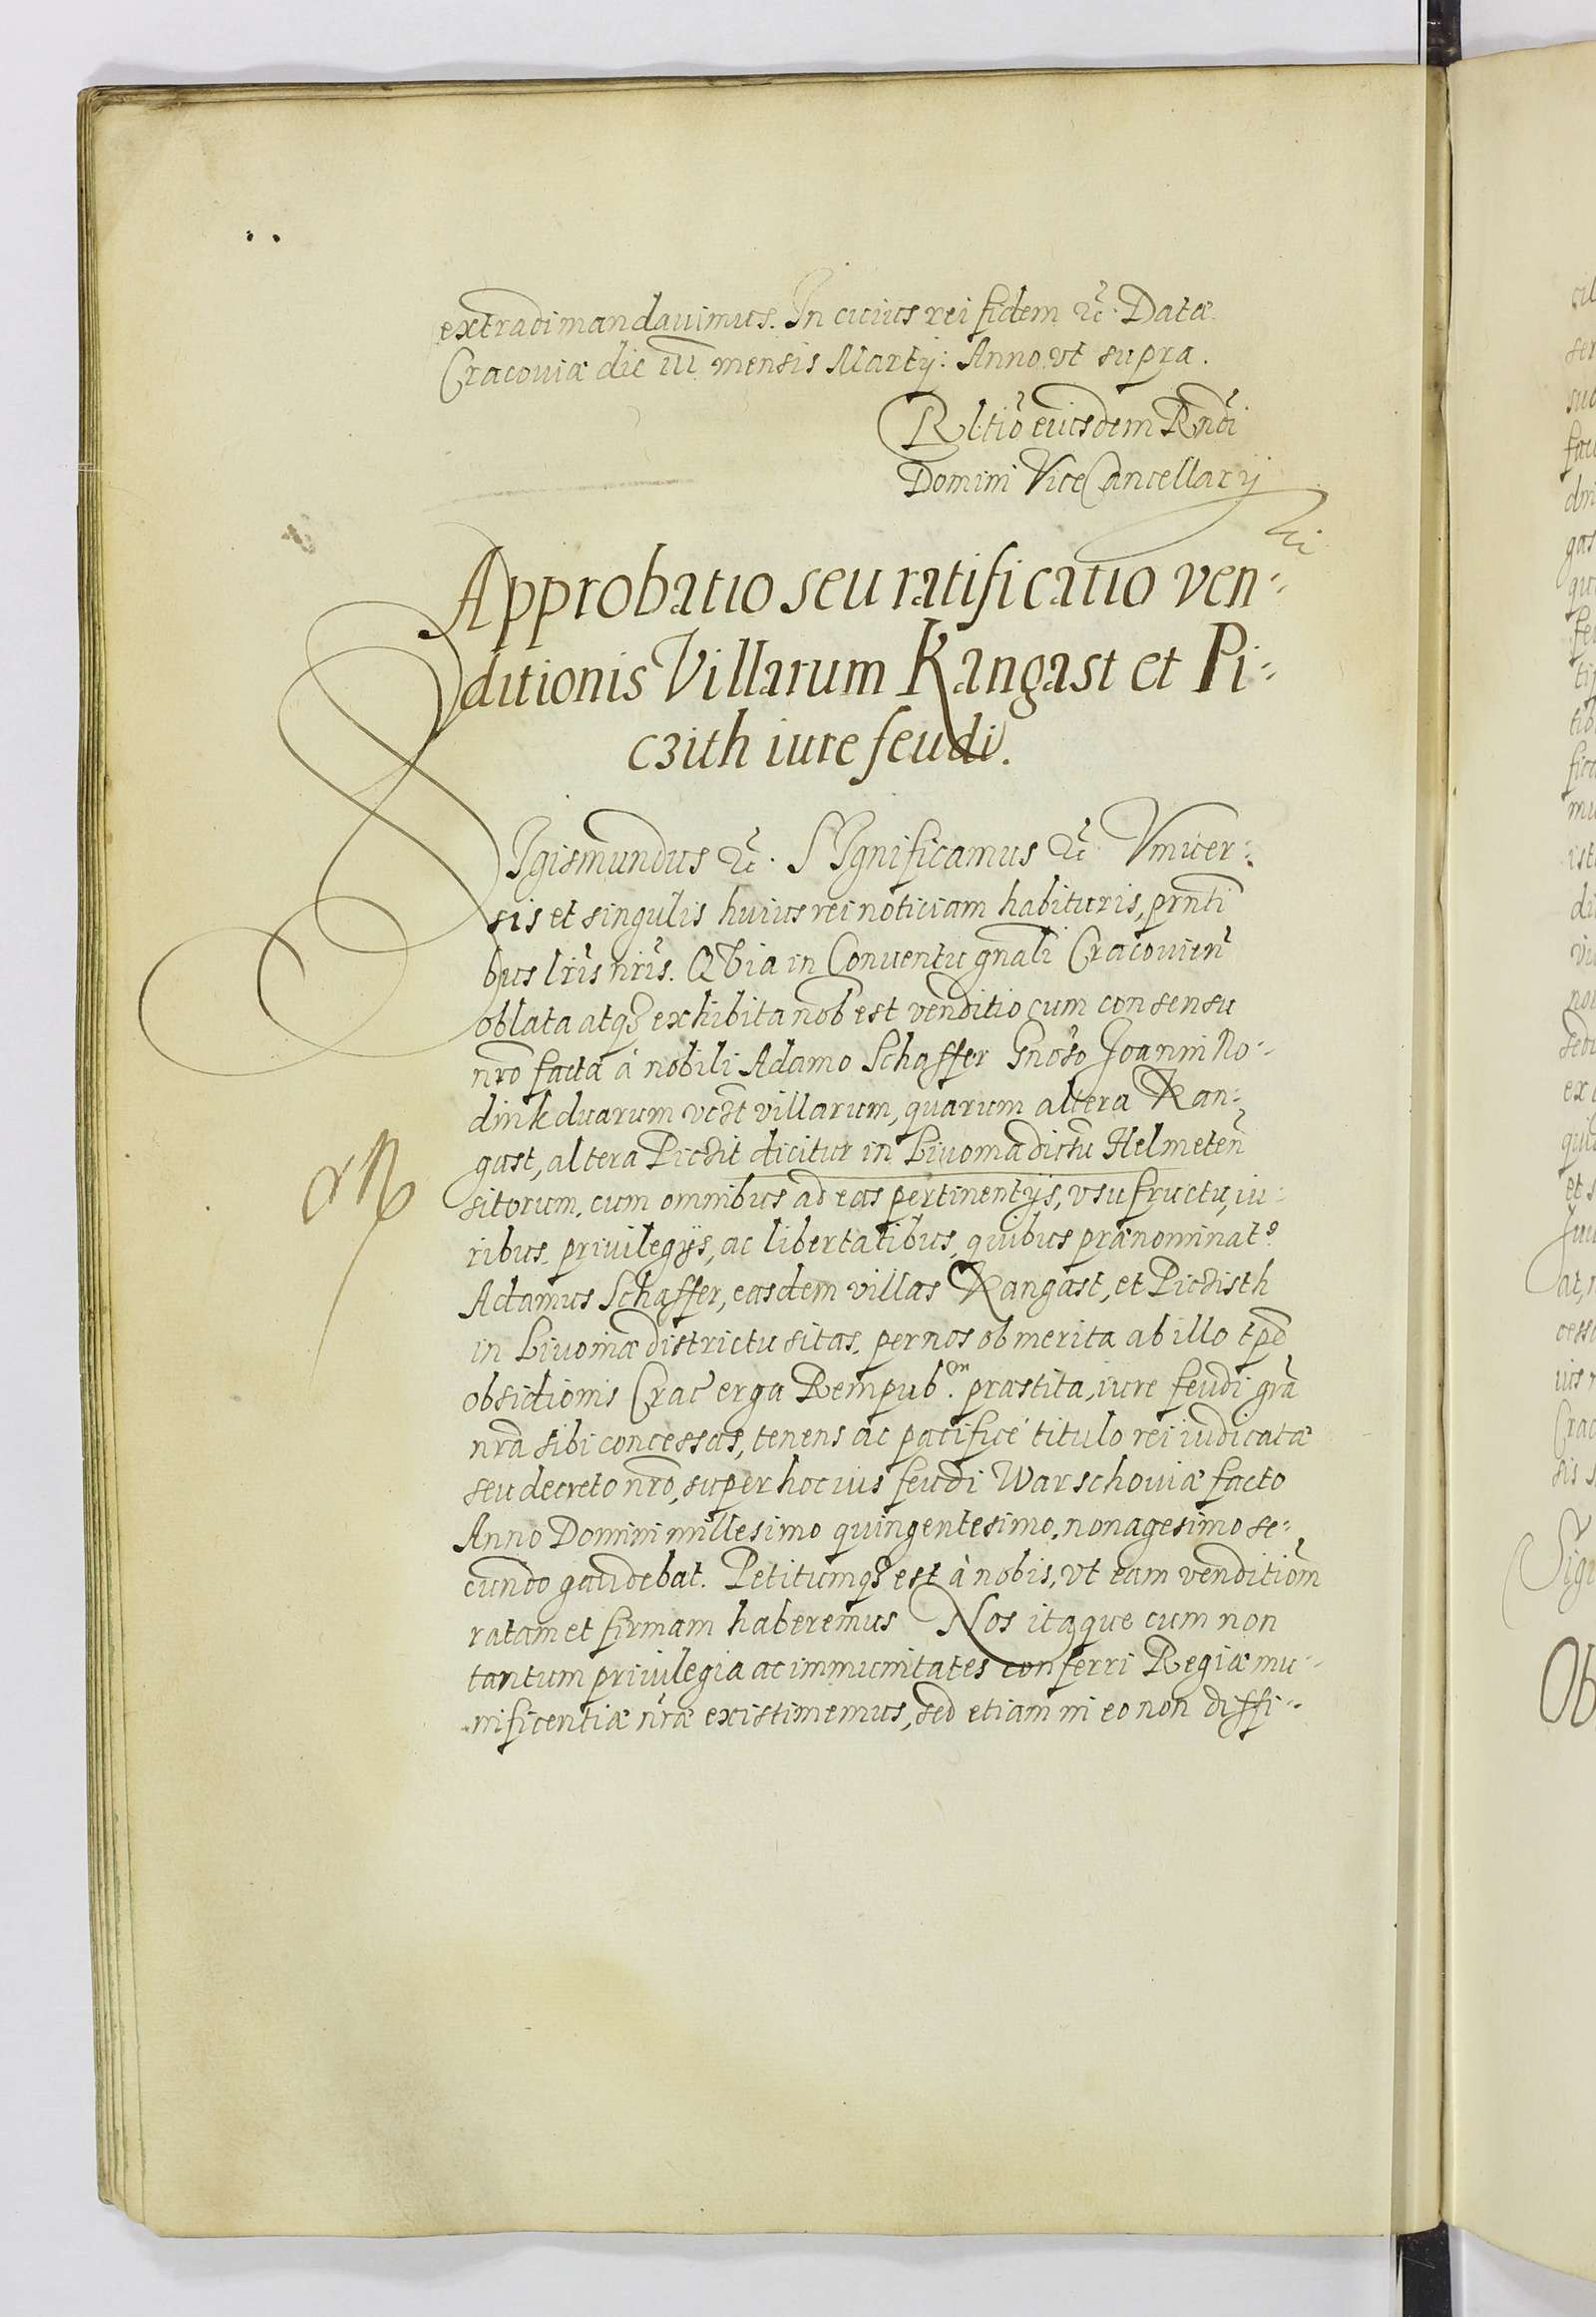 extradi mandauimus. In cuius rei fidem ꝛc̃. Datæ
Cracouiæ die iii mensis Martij: Anno vt supra.
Rl̃tio eiusdem Rñdi
Domini ViceCancellarij
Approbatio seu ratificatio ven⸗
ditionis Villarum Kangast et Pi⸗
czith iure feudi.
SIgismundus ꝛc̃. SIgnificamus ꝛc̃ Vniuer⸗
sis et singulis huius rei noticiam habituris, prñti
bus lr̃is nr̃is. QVia in Conuentu gñali Cracouieñ
oblata atqꝫ exhibita nob est venditio cum consensu
nr̃o facta à nobili Adamo Schaffer Gnõso Joanni No⸗
dink duarum vczt villarum, quarum altera Kan⸗
gast, altera Piczit dicitur in Liuonia dictu Helmeteñ
sitorum, cum omnibus ad eas pertinentijs, vsufructu, iu⸗
ribus, priuilegijs, ac libertatibus, quibus prænominatꝰ
Adamus Schaffer, easdem villas Kangast, et Piczisth
in Liuoniæ districtu sitas, per nos ob merita ab illo tp̃e
obsidionis Crac̃ erga Rempub.on præstita, iure feudi grã
nrã sibi concessas, tenens ac pacificé titulo rei iudicatæ
seu decreto nr̃o, super hoc ius feudi Warschouiæ facto
Anno Domini millesimo quingentesimo, nonagesimo se⸗
cundo gaudebat. Petitumqꝫ est à nobis, vt eam venditiom̃
ratam et firmam haberemus Nos itaque cum non
tantum priuilegia ac immunitates conferri Regiæ mu⸗
nificentiæ nr̃æ existimemus, sed etiam in eo non diffi⸗